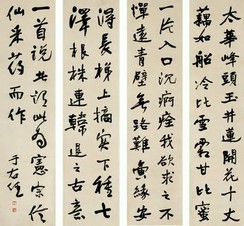 太華峯頭玉井蓮開花十丈
藕如船冷比雪霜甘比蜜
一片入口沉痾痊我欲求之不
憚遠青壁無路難夤緣安
得長梯上摘實下種七
澤根株連韓退之古意
一首說者謂此為憲宗信
仙采药而作
于右任